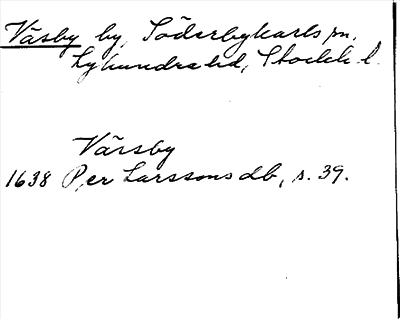 Väsby by, Söderbykarls sn,
Lyhundra hd, Stockh. l.
Värsby
1638 Per Larssons db, s. 39.